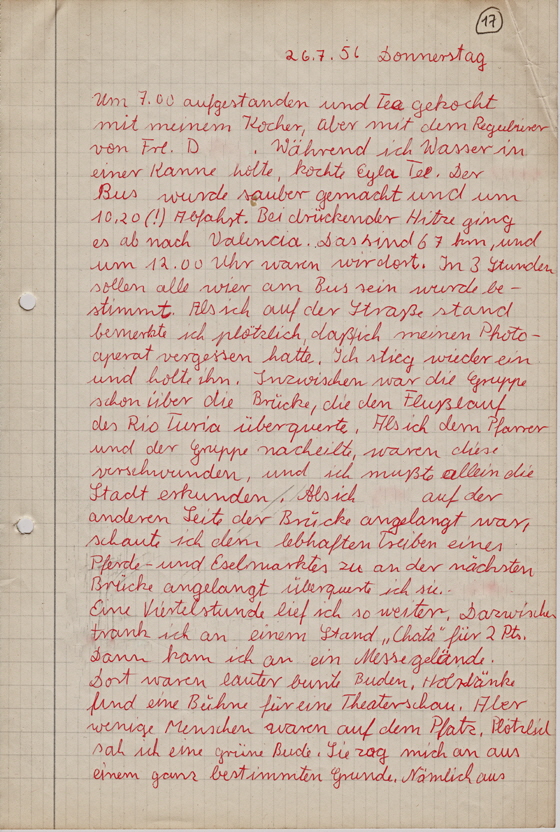 17
26.7.56 Donnerstag
Um 7.00 aufgestanden und Tee gekocht
mit meinem Kocher, aber mit dem Regulierer
von Frl. D . Während ich Wasser in
einer Kanne holte, kochte Eyla Tee. Der
Bus wurde sauber gemacht und um
10,20 (!) Abfahrt. Bei drückender Hitze ging
es ab nach Valencia. Das sind 67 km, und
um 12.00 Uhr waren wir dort. In 3 Stunden
sollen alle wier am Bus sein wurde be-
stimmt. Als ich auf der Straße stand
bemerkte ich plötzlich, daß ich meinen Photo-
aperat vergessen hatte. Ich stieg wieder ein
und holte ihn. Inzwischen war die Gruppe
schon über die Brücke, die den Flußlauf
des Rio Turia überquerte. Als ich dem Pfarrer
und der Gruppe nacheilte, waren diese
verschwunden, und ich mußte allein die
Stadt erkunden. Als ich auf der
anderen Seite der Brücke angelangt war,
schaute ich dem lebhaften Treiben eines
Pferde- und Eselmarktes zu an der nächsten
Brücke angelangt überquerte ich sie.
Eine Viertelstunde lief ich so weiter. Dazwischen
trank ich an einem Stand „Chats“ für 2 Pts.
Dann kam ich an ein Messegelände.
Dort waren lauter bunte Buden, Holzbänke
und eine Bühne für eine Theaterschau. Aber
wenige Menschen waren auf dem Platz. Plötzlich
sah ich eine grüne Bude. Sie zog mich an aus
einem ganz bestimmten Grunde. Nämlich aus